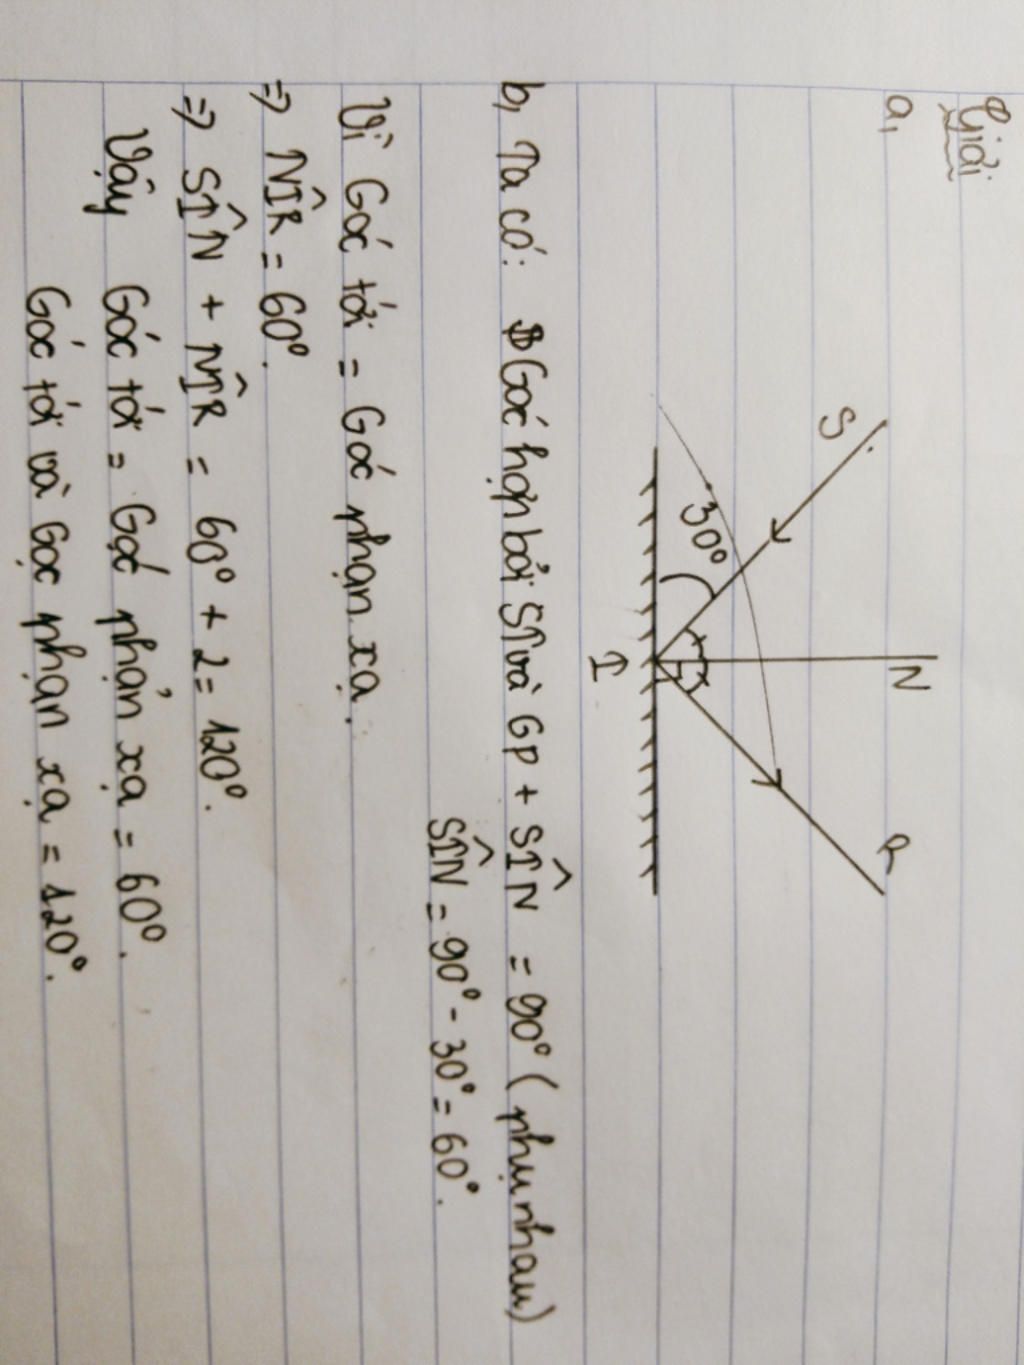 Giải
a,
S
N
R
30°
I
b, Ta có: Góc hợp bởi SI và GP + SÎN = 90° ( phụ nhau)
SÎN = 90° - 30° = 60°.
Vì Góc tới = Góc phạn xạ.
=> NÎR = 60°.
=> SÎN + NÎR = 60° + 2 = 120°.
Vậy Góc tới = Góc phản xạ = 60°.
Góc tới và Góc phạn xạ = 120°.